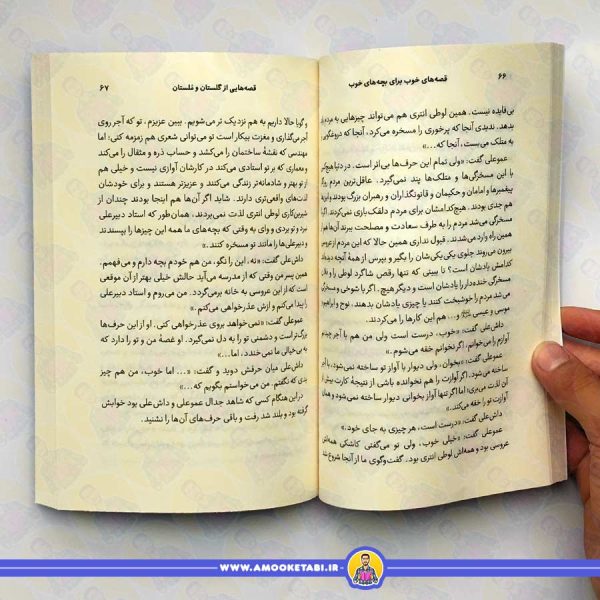 ۶۶ قصه‌های خوب برای بچه‌های خوب
بی‌فایده نیست. همین لوطی انتری هم می‌تواند چیزهایی به مردم یاد
بدهد. ندیدی آنجا که پرخوری را مسخره می‌کرد، آنجا که دروغگویی
به متلک می‌بست، آنجا که...»
عموعلی گفت: «ولی تمام این حرف‌ها بی‌اثر است. در دنیا هیچ‌کس
با این مسخرگی‌ها و متلک‌ها پند نمی‌گیرد. عاقل‌ترین مردم
پیغمبرها و امامان و حکیمان و قانونگذاران و رهبران بزرگ بودند و اینها
هم جدی بودند. هیچ‌کدامشان برای مردم دلقک‌بازی نمی‌کردند. اگر
مسخرگی می‌شد مردم را به طرف سعادت و مصلحت ببرند آن‌ها هم
همین راه وارد می‌شدند. قبول نداری همین حالا که این مردم از عروسی
بیرون می‌روند جلوی یکی‌یکی‌شان را بگیر و بپرس از همهٔ آنچه دیدند
کدامش یادشان است؟ تا ببینی که تنها رقص شاگرد لوطی را و
مسخرگی خنده‌دار را یادشان است و دیگر هیچ. اگر با شوخی و مسخرگی
می‌شد مردم را خوشبخت کنند یا چیزی یادشان بدهند، نوح و ابراهیم
موسی و عیسی و... هم این کارها را می‌کردند.
داش‌علی گفت: «خوب، درست است ولی من هم با آجر چیدن
آوازم را می‌خوانم. اگر نخوانم خفه می‌شوم.»
عموعلی گفت: «بخوان، ولی دیوار با آواز تو ساخته نمی‌شود، با آجر
ساخته می‌شود. اگر آوازت را هم نخوانده باشی از نتیجهٔ کارت بیش از
آن لذت می‌بری؛ اما اگر تنها آواز بخوانی دیوار ساخته نمی‌شود و همان
آوازت تو را خفه می‌کند.»
داش‌علی گفت: «درست است، هر چیزی به جای خود.»
عموعلی گفت: «خیلی خوب، ولی تو می‌گفتی کاشکی همه‌اش
عروسی بود و همه‌اش لوطی انتری بود. گفت‌وگوی ما از آنجا شروع شد
قصه‌هایی از گلستان و مُلستان ۶۷
و گویا حالا داریم به هم نزدیک‌تر می‌شویم. ببین عزیزم، تو که آجر روی
آجر می‌گذاری و مغزت بیکار است تو می‌توانی شعری هم زمزمه کنی؛ اما
مهندسی که نقشهٔ ساختمان را می‌کشد و حساب ذره و مثقال را می‌کند
و معماری که بر تو استادی می‌کند در کارشان آوازی نیست و خیلی هم
از تو بهتر و شادمانه‌تر زندگی می‌کنند و عزیزتر هستند و برای خودشان
لذت‌های واقعی‌تری دارند. شاید اگر آن‌ها هم اینجا بودند چندان از
شیرین‌کاری لوطی انتری لذت نمی‌بردند، همان‌طور که استاد دبیرعلی
برد و تو بردی و وای به وقتی که بچه‌های ما همه این چیزها را بپسندند
و دبیرعلی‌ها را مانند تو مسخره کنند.»
داش‌علی گفت: «نه، این را نگو، من هم بچه دارم و می‌فهمم.
همین پسر من وقتی که از مدرسه می‌آید حالش خیلی بهتر از آن موقعی
است که از این عروسی به خانه برمی‌گردد. من می‌روم و استاد دبیرعلی
را پیدا می‌کنم و از او ازش عذرخواهی می‌کنم.»
عموعلی گفت: «نمی‌خواهد بروی عذرخواهی کنی. او از این حرف‌ها
بزرگ‌تر است و دشمنی تو را به دل نمی‌گیرد. او غصهٔ من و تو را دارد که
به بی‌خیالی ما نمی‌خندد، اما...»
داش‌علی میان حرفش دوید و گفت: «... اما خوب، من هم چیز
بدی که نگفتم. من می‌خواستم بگویم که...»
در این هنگام کسی که شاهد جدال عموعلی و داش‌علی بود خوابش
گرفته بود و بلند شد رفت و باقی حرف‌های آن‌ها را نشنید.
WWW.AMOOKETABI.IR